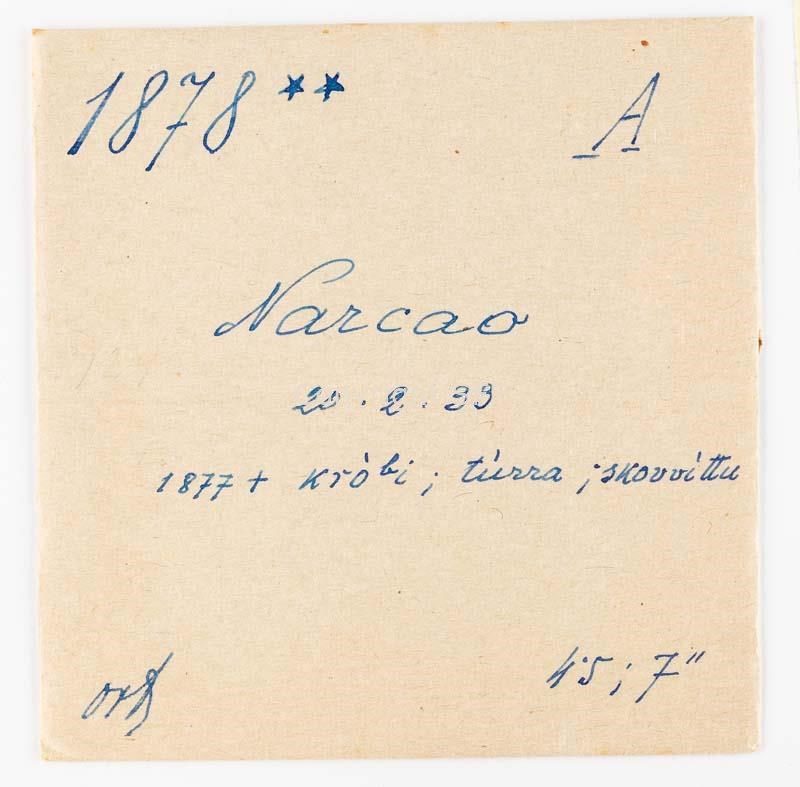 1878 ** A
Narcao
20 . 2 . 33
1877 + kròbi ; túrra ; skovvíttu
45 ; 7"